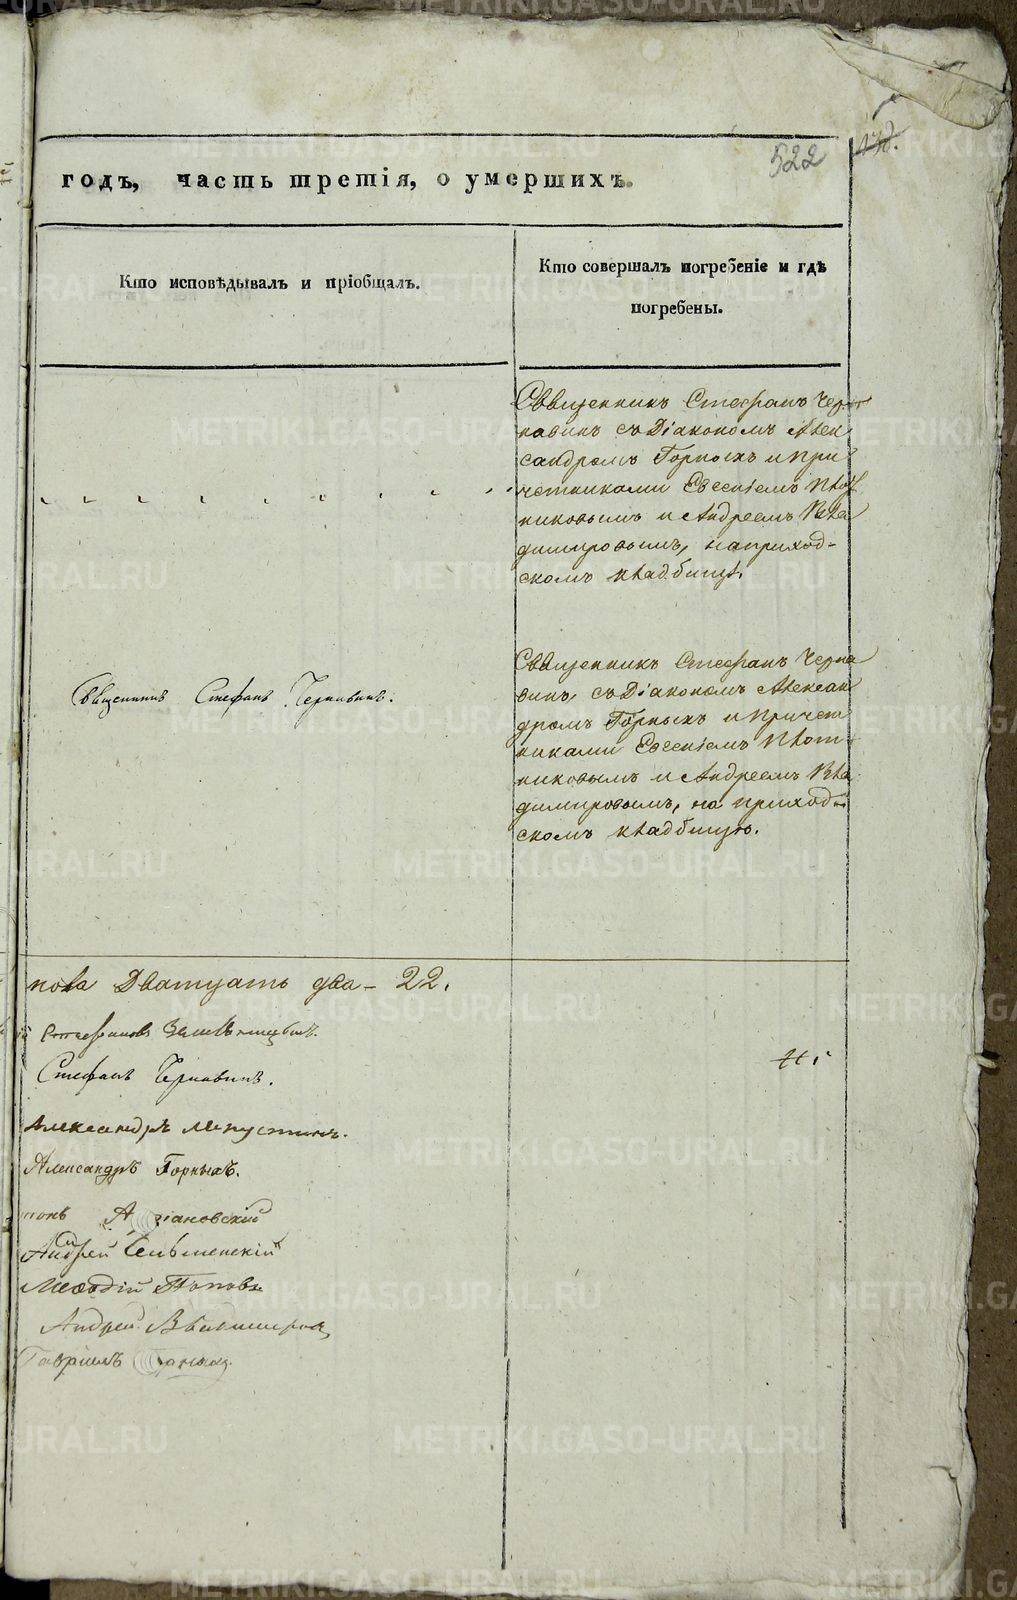 522
годъ, часть третія, о умершихъ.
Кто исповѣдывалъ и пріобщалъ.
Кто совершалъ погребеніе и гдѣ
погребены.
Священникъ Стефанъ Чер
навинъ съ Діакономъ Алек
сандромъ Горныхъ и при
четниками Евсевіемъ Плот
никовымъ и Андреемъ Вла
димировымъ, на приход-
скомъ кладбищѣ.
Священникъ Стефанъ Чернавинъ.
Священникъ Стефанъ Черна
винъ, съ Діакономъ Алексан
дромъ Горныхъ и причет
никами Евсевіемъ Плот
никовымъ и Андреемъ Вла
димировымъ, на приход
скомъ кладбищѣ.
пола Двадцать два - 22.
Стефанъ Чернавинъ.
Александръ
Александръ Горныхъ.
Андрей
Меѳодій Поповъ
Андрей Владимировъ
Гавріилъ
METRIKI.GASO-URAL.RU